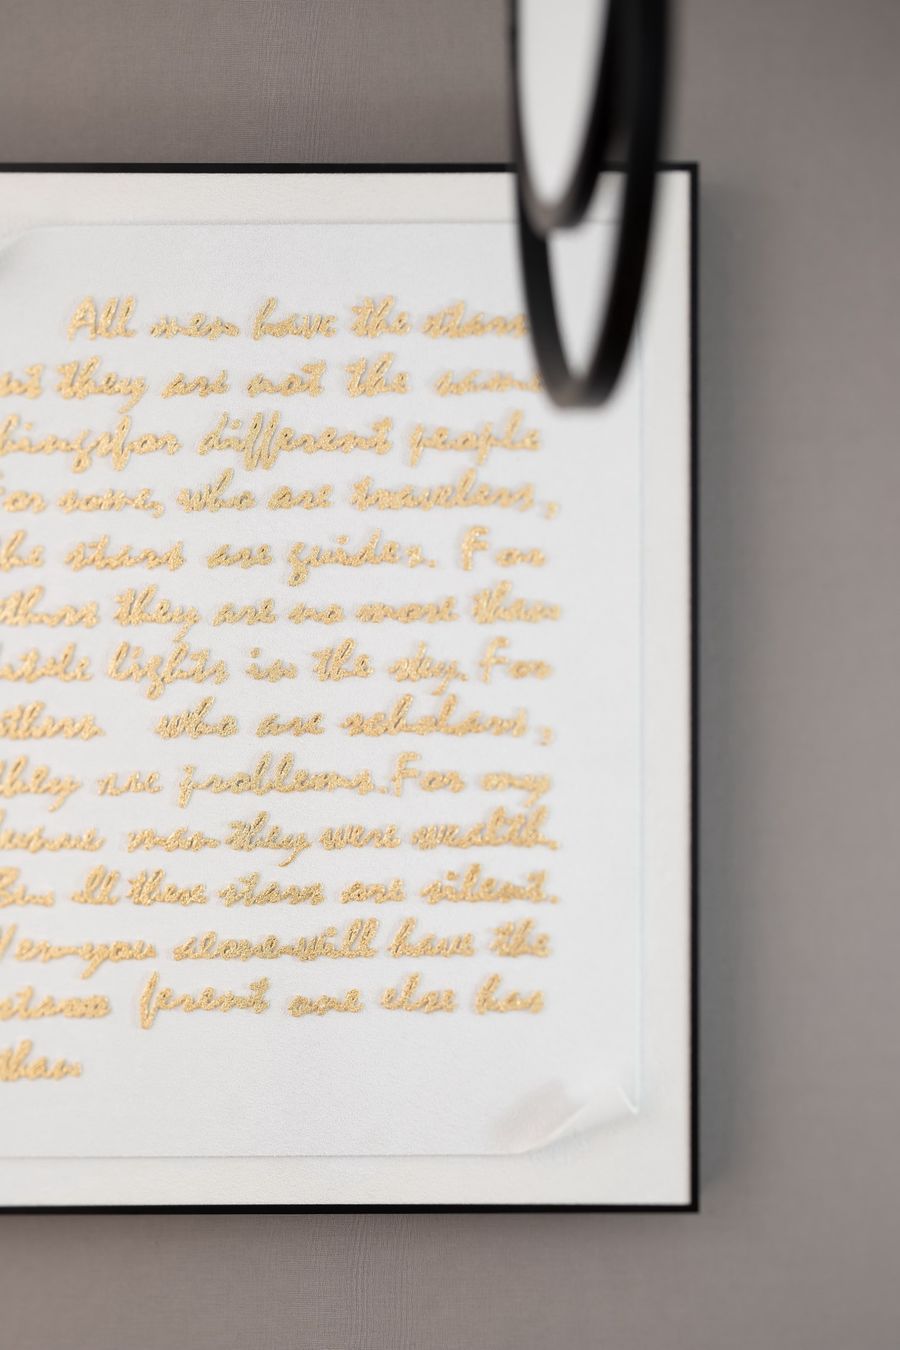 All men have the stars
they are not the same
different people
some, who are travelers,
the stars are guides. For
they are no more than
lights in the sky. For
who are scholars,
they are problems. For my
man they were wealth.
all these stars are silent.
you alone will have the
one else has